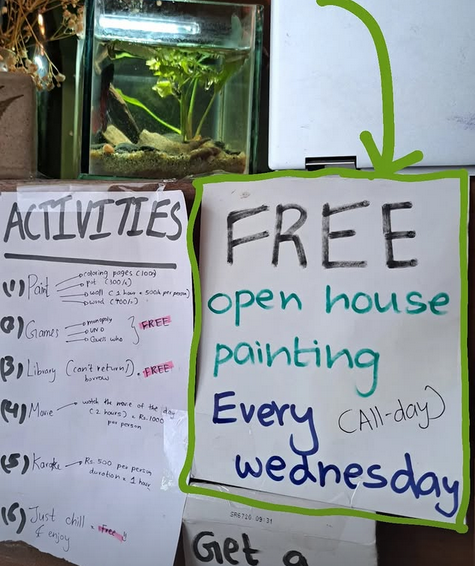 ACTIVITIES
(1) Paint
coloring pages (100)
pot (300/-)
wall (1 hour = 500/- per person)
(2) Games
monopoly
UNO
Guess who
FREE
(3) Library (can't return) = FREE
borrow
(4) Movie
watch the movie of the day
(2 hours) = Rs. 1000
per person
(5) Karaoke
Rs. 500 per person
duration = 1 hour
(6) Just chill = Free
& enjoy
FREE
open house
painting
Every (All-day)
wednesday
SR6726 09:31
Get a